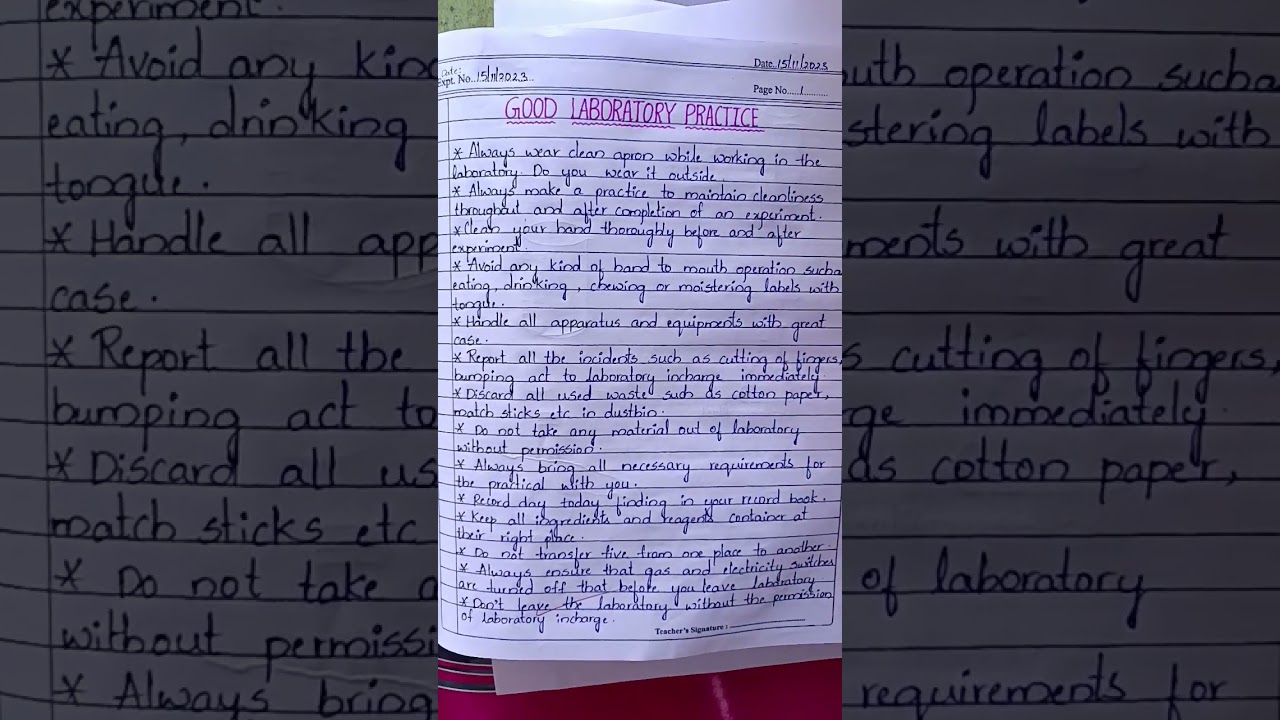 Date. 15/11/2023
Date:
Expt. No. 15/11/2023
Page No. 1
GOOD LABORATORY PRACTICE
* Always wear clean apron while working in the
laboratory. Do you wear it outside.
* Always make a practice to maintain cleanliness
throughout and after completion of an experiment.
* Clean your hand thoroughly before and after
experiment.
* Avoid any kind of hand to mouth operation sucha
eating, drinking, chewing or moistering labels with
tongue.
* Handle all apparatus and equipments with great
case.
* Report all the incidents such as cutting of fingers,
bumping act to laboratory incharge immediately.
* Discard all used waste such as cotton paper,
match sticks etc in dustbin.
* Do not take any material out of laboratory
without permission.
* Always bring all necessary requirements for
the practical with you.
* Record day today finding in your record book.
* Keep all ingredients and reagents container at
their right place.
* Do not transfer five from one place to another.
* Always ensure that gas and electricity switches
are turned off that before you leave laboratory
* Don't leave the laboratory without the permission
of laboratory incharge.
Teacher's Signature :